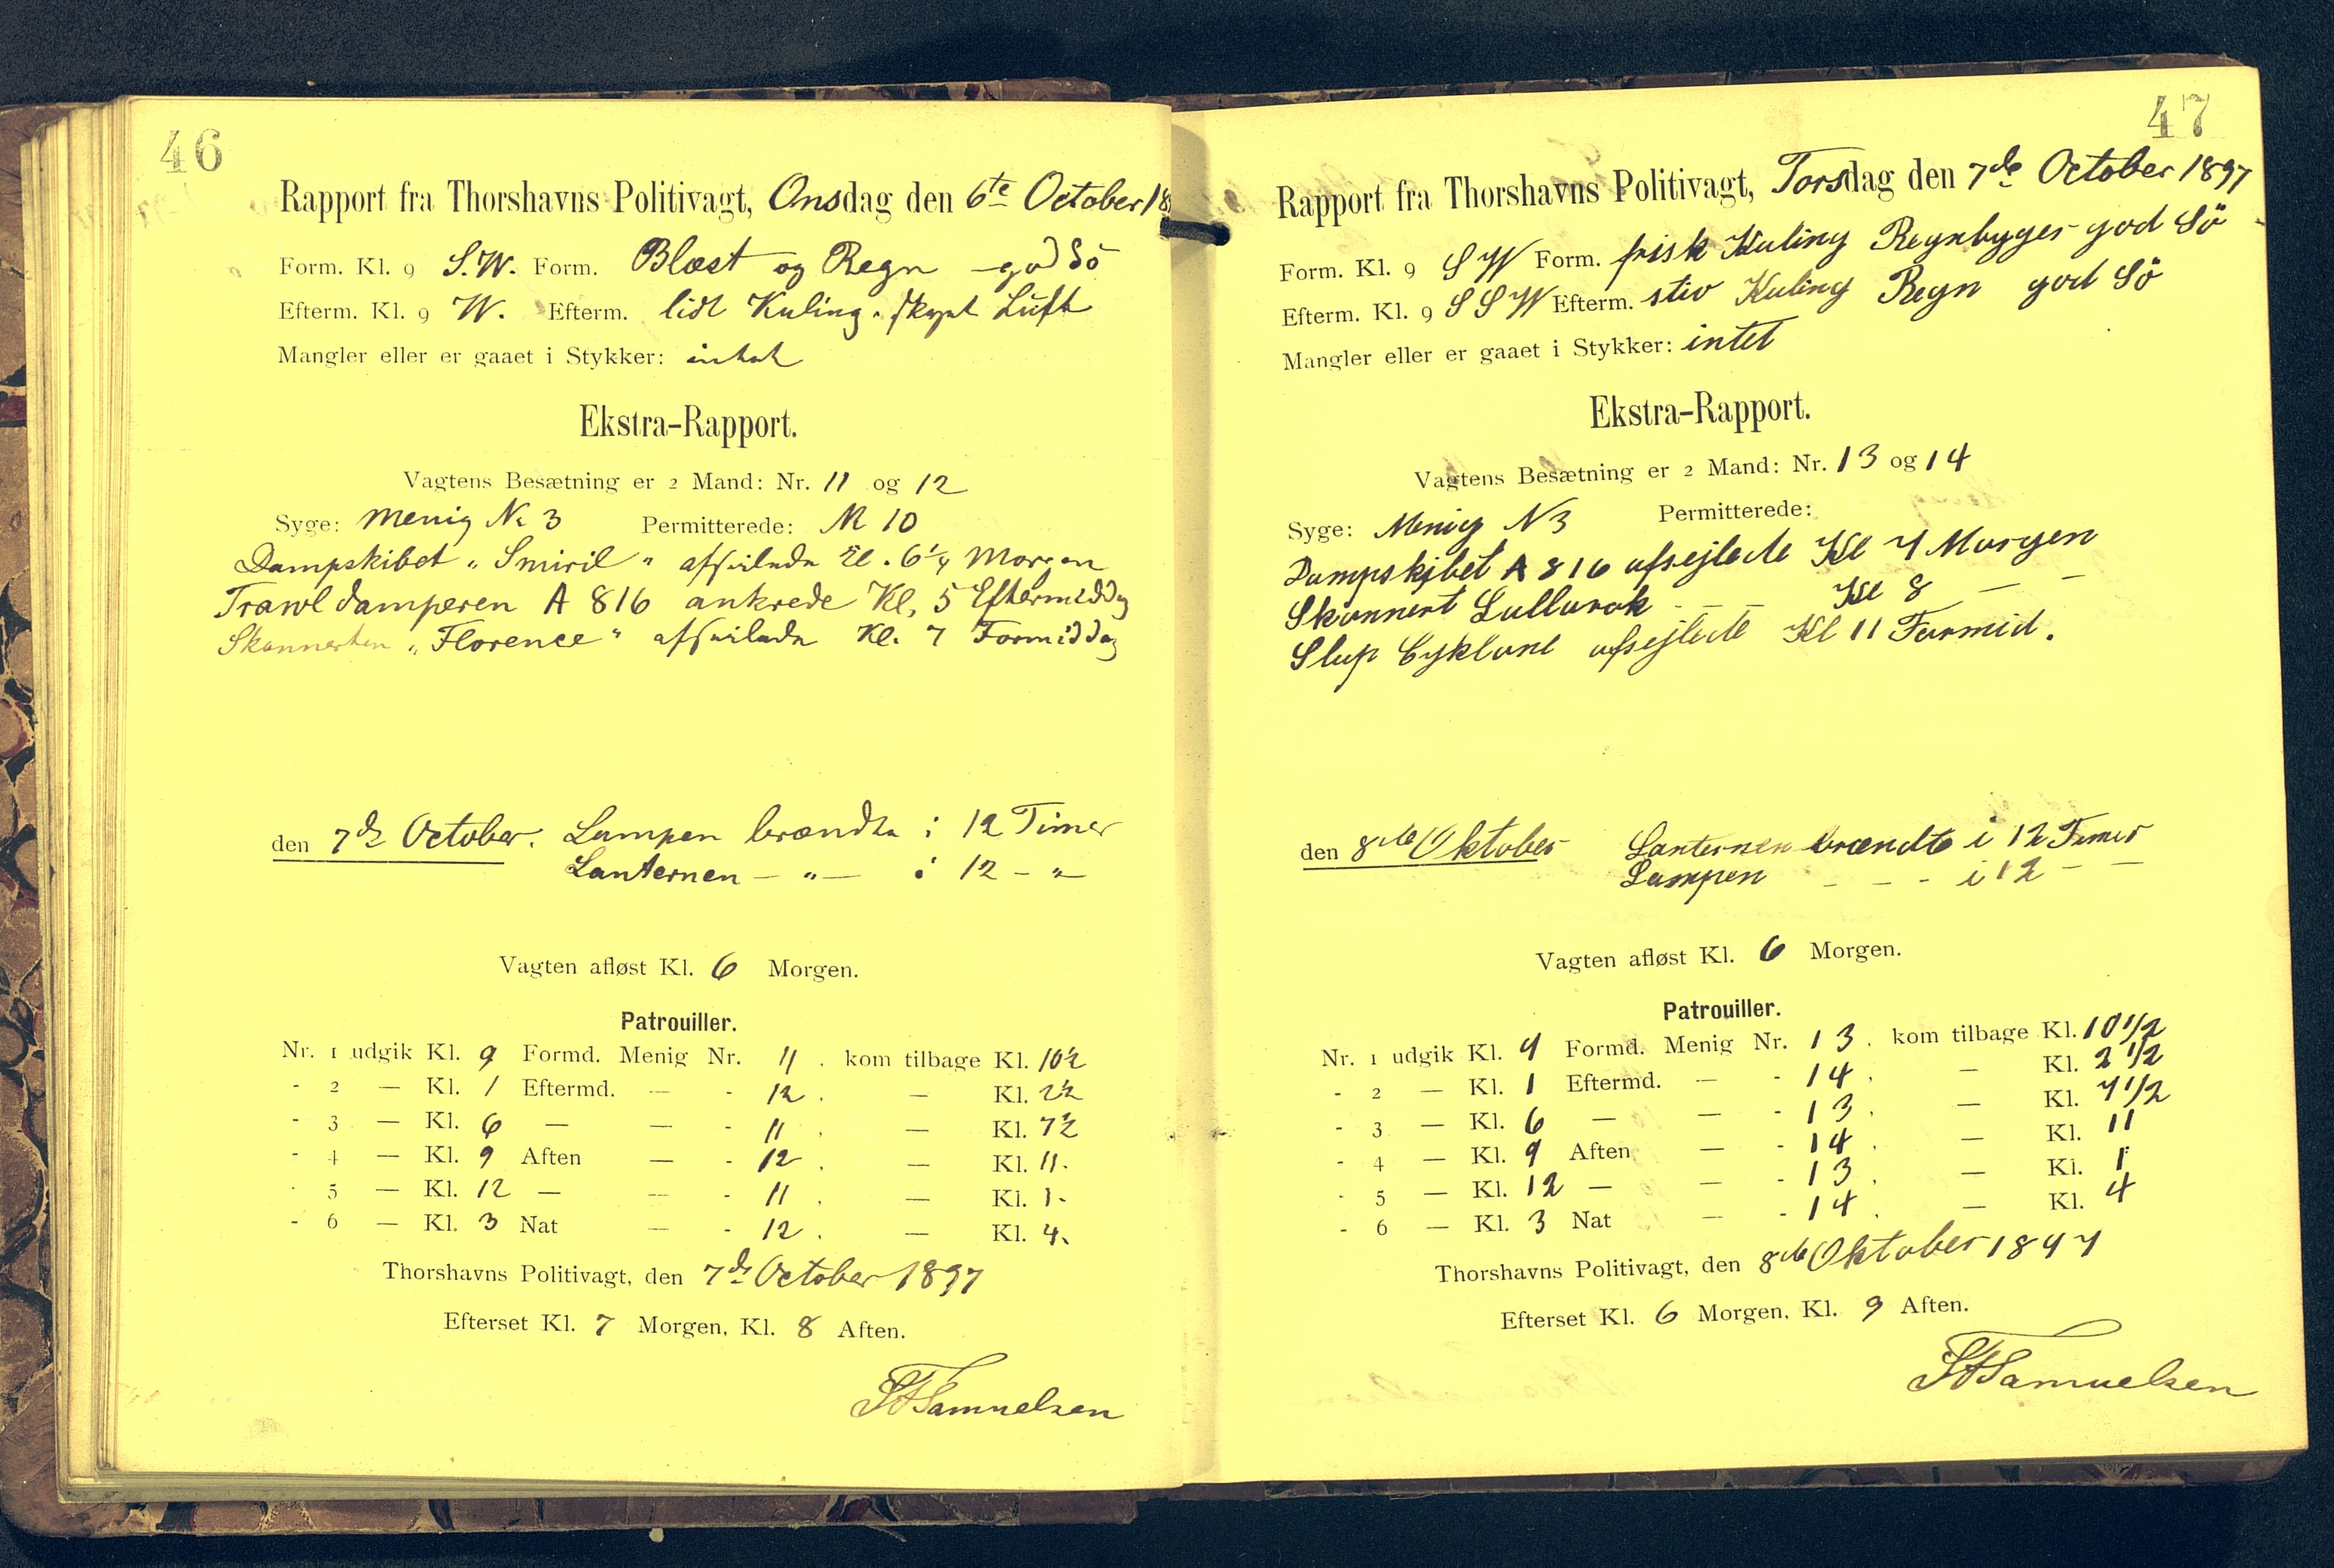 46
Rapport fra Thorshavns Politivagt, Onsdag den 6te October 18
Form. Kl. 9 S.W. Form. Blæst og Regn - god Sö
Efterm. Kl. 9 W. Efterm. lidt Kuling. skyet Luft
Mangler eller er gaaet i Stykker: intet
Ekstra-Rapport.
Vagtens Besætning er 2 Mand: Nr. 11 og 12
Syge: Menig Nr 3 Permitterede: N 10
Dampskibet „Smiril" afseilede Kl. 6 1/4 Morgen
Trawldamperen A 816 ankrede Kl. 5 Eftermiddag
Skonnerten „Florence" afseilede Kl. 7 Formiddag
den 7de October. Lampen brændte i 12 Timer
Lanternen — „ — i 12 - „ -
Vagten afløst Kl. 6 Morgen.
Patrouiller.
Nr. 1 udgik Kl. 9 Formd. Menig Nr. 11. kom tilbage Kl. 10 1/2
- 2 — Kl. 1 Eftermd. — - 12. — Kl. 2 1/2
- 3 — Kl. 6 — — - 11. — Kl. 7 1/2
- 4 — Kl. 9 Aften — - 12. — Kl. 11.
- 5 — Kl. 12 — — - 11. — Kl. 1.
- 6 — Kl. 3 Nat — - 12. — Kl. 4.
Thorshavns Politivagt, den 7de October 1897
Efterset Kl. 7 Morgen, Kl. 8 Aften.
Samuelsen
47
Rapport fra Thorshavns Politivagt, Torsdag den 7de October 1897
Form. Kl. 9 S W Form. frisk Kuling Regnbyger god Sö
Efterm. Kl. 9 S S W Efterm. stiv Kuling Regn god Sö
Mangler eller er gaaet i Stykker: intet
Ekstra-Rapport.
Vagtens Besætning er 2 Mand: Nr. 13 og 14
Syge: Menig N 3 Permitterede:
Dampskibet A 816 afsejlede Kl 7 Morgen
Skonnert - — — Kl 8 — —
Slup Cyklone afsejlede Kl 11 Formid.
den 8de Oktober Lanternen brændte i 12 Timer
Lampen - - - i 12 —
Vagten afløst Kl. 6 Morgen.
Patrouiller.
Nr. 1 udgik Kl. 9 Formd. Menig Nr. 13. kom tilbage Kl. 10 1/2
- 2 — Kl. 1 Eftermd. — - 14. — Kl. 2 1/2
- 3 — Kl. 6 — — - 13. — Kl. 7 1/2
- 4 — Kl. 9 Aften — - 14. — Kl. 11
- 5 — Kl. 12 — — - 13. — Kl. 1
- 6 — Kl. 3 Nat — - 14. — Kl. 4
Thorshavns Politivagt, den 8de Oktober 1897
Efterset Kl. 6 Morgen, Kl. 9 Aften.
Samuelsen